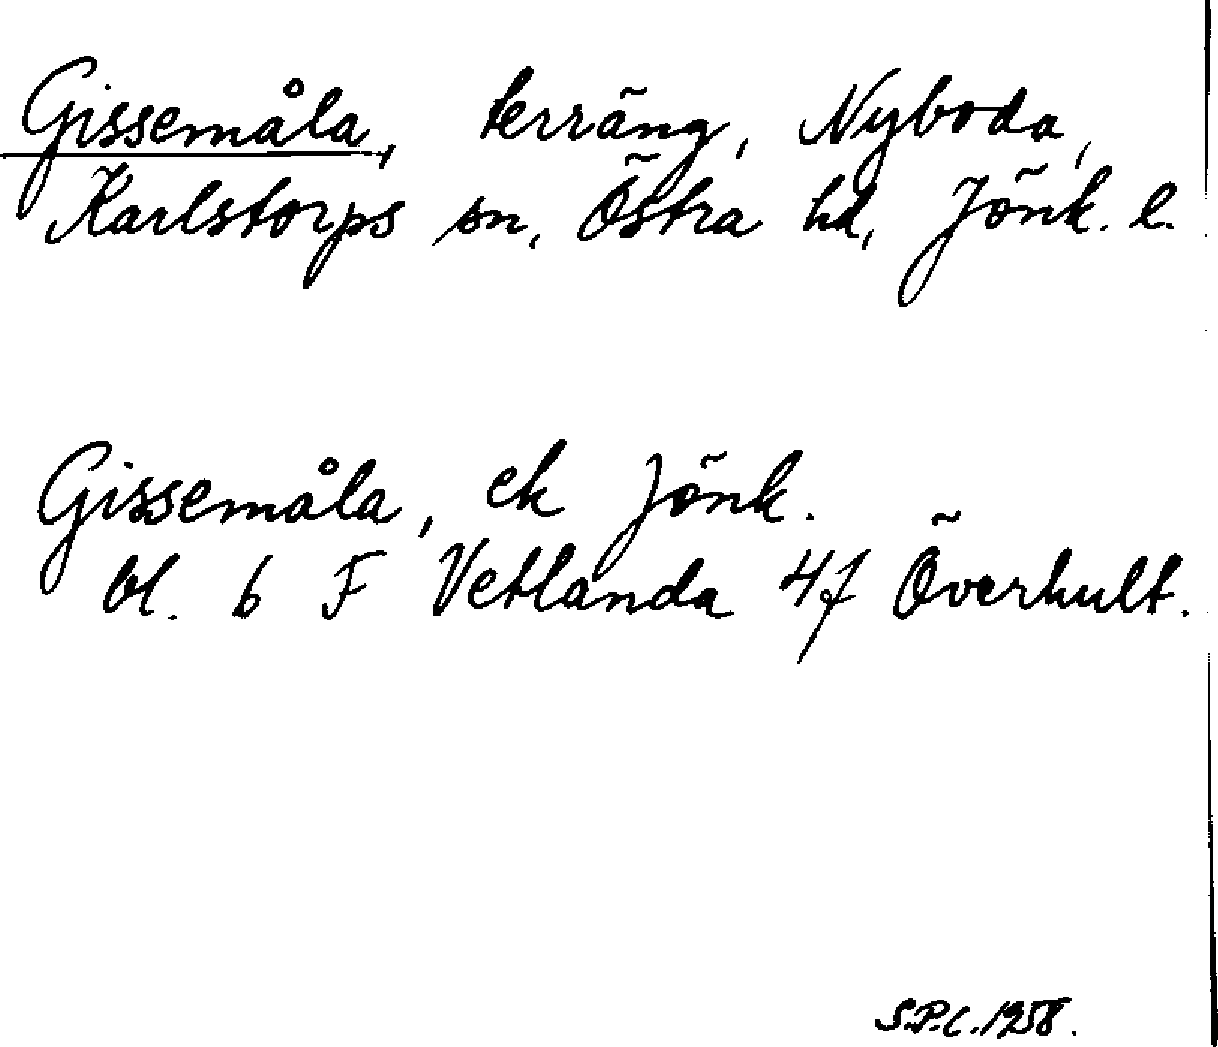 Gissemåla, terräng, Nyboda,
Karlstorps sn, Östra hd, Jönk. l.
Gissemåla, ek Jönk.
bl. 6 F Vetlanda 4f Överhult.
S.P.C. 1958.